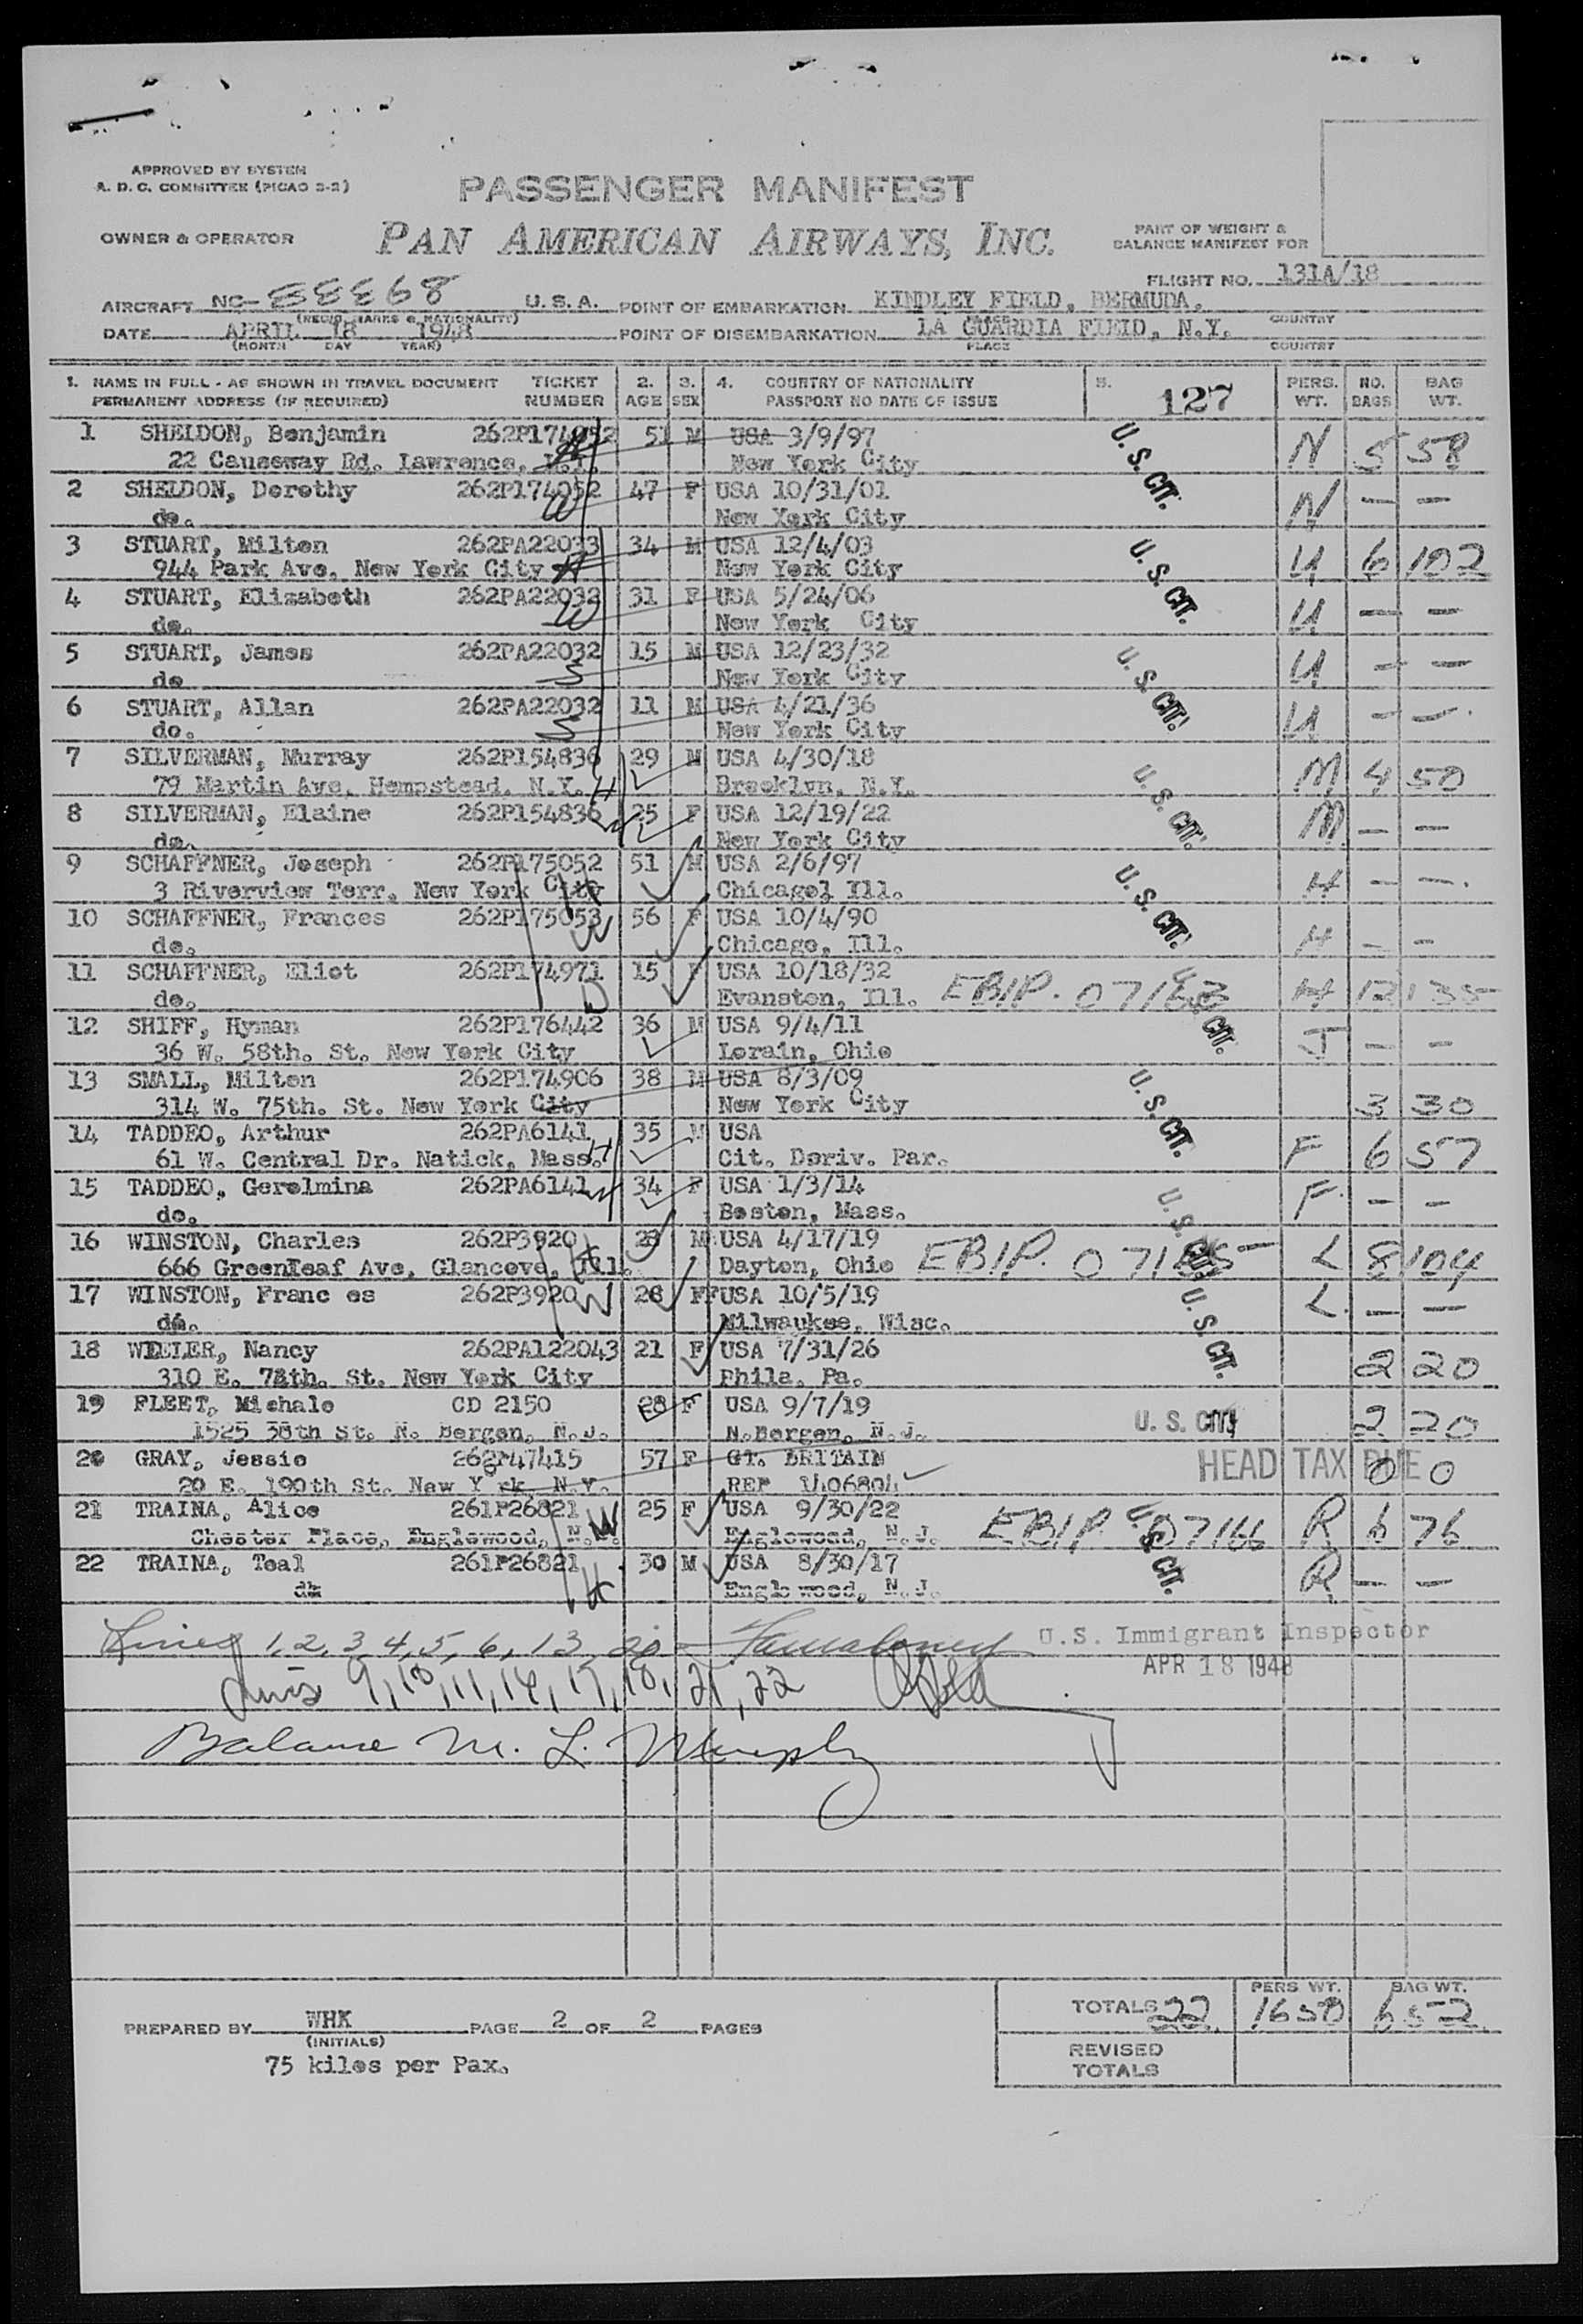 APPROVED BY SYSTEM
A. D. C. COMMITTEE (PICAO 2-2)
PASSENGER MANIFEST
OWNER & OPERATOR
PAN AMERICAN AIRWAYS, INC.
PART OF WEIGHT &
BALANCE MANIFEST FOR
FLIGHT NO. 131A/18
AIRCRAFT NC-88868 U. S. A. POINT OF EMBARKATION KINDLEY FIELD, BERMUDA,
(REGIS. MARKS & NATIONALITY) PLACE COUNTRY
DATE APRIL 18 1948 POINT OF DISEMBARKATION LA GUARDIA FIELD, N.Y.
(MONTH DAY YEAR) PLACE COUNTRY
1. NAME IN FULL - AS SHOWN IN TRAVEL DOCUMENT TICKET 2. 3. 4. COUNTRY OF NATIONALITY 5. 127 PERS. NO. BAG
PERMANENT ADDRESS (IF REQUIRED) NUMBER AGE SEX PASSPORT NO DATE OF ISSUE WT. BAGS WT.
1 SHELDON, Benjamin 262P174052 51 M USA 3/9/97 U. S. CIT. N 5 58
22 Causeway Rd. Lawrence, N.Y. New York City
2 SHELDON, Dorothy 262P174052 47 F USA 10/31/01 N — —
do. W New York City
3 STUART, Milton 262PA22033 34 M USA 12/4/03 U. S. CIT. U 6 102
944 Park Ave. New York City H New York City
4 STUART, Elizabeth 262PA22032 31 F USA 5/24/06 U — —
do. W New York City
5 STUART, James 262PA22032 15 M USA 12/23/32 U. S. CIT. U — —
do S New York City
6 STUART, Allan 262PA22032 11 M USA 4/21/36 U — —
do. S New York City
7 SILVERMAN, Murray 262P154836 29 M USA 4/30/18 U. S. CIT. M 4 50
79 Martin Ave. Hempstead. N.Y. H Brooklyn, N.Y.
8 SILVERMAN, Elaine 262P154836 W 25 F USA 12/19/22 M — —
do. New York City
9 SCHAFFNER, Joseph 262P175052 51 M USA 2/6/97 U. S. CIT. H — —
3 Riverview Terr. New York City H Chicago, Ill.
10 SCHAFFNER, Frances 262P175053 56 F USA 10/4/90 H — —
do. W Chicago, Ill.
11 SCHAFFNER, Eliot 262P174971 15 F USA 10/18/32 U. S. CIT. H 12 135
do. D Evanston, Ill. EBIP. 07163
12 SHIFF, Hyman 262P176442 36 M USA 9/4/11 H — —
36 W. 58th. St. New York City Lorain, Ohio
13 SMALL, Milton 262P174906 38 M USA 8/3/09 U. S. CIT. 3 30
314 W. 75th. St. New York City New York City
14 TADDEO, Arthur 262PA6141 35 M USA F 6 57
61 W. Central Dr. Natick, Mass. H Cit. Deriv. Par.
15 TADDEO, Gerolmina 262PA6141 W 34 F USA 1/3/14 U. S. CIT. F — —
do. Boston, Mass.
16 WINSTON, Charles 262P3920 28 M USA 4/17/19 L 8 104
666 Greenleaf Ave, Glancove, Ill. H Dayton, Ohio EBIP. 07165
17 WINSTON, Franc es 262P3920 W 28 F USA 10/5/19 U. S. CIT. L — —
do. Milwaukee, Wisc.
18 Nancy 262PA122043 21 F USA 7/31/26 2 20
310 E. St. New York City Phila. Pa.
19 FLEET, Michale CD 2150 28 F USA 9/7/19 U. S. CIT. 2 20
1525 38th St. N. Bergen, N.J. N.Bergen, N.J.
20 GRAY, Jessie 262P47415 57 F GT. BRITAIN HEAD TAX DUE 0 0
20 E. 190th St. New York, N.Y. REP 1406804
21 TRAINA, Alice 261P26821 25 F USA 9/30/22 U. S. CIT. R 6 76
Chester Place, Englewood, N.J. W Englewood, N.J. EBIP 07166
22 TRAINA, Teal 261P26821 30 M USA 8/30/17 R — —
do H Englewood, N.J.
Lines 1, 2, 3, 4, 5, 6, 13, 20 U.S. Immigrant Inspector
APR 18 1948
Lines 9, 10, 11, 16, 17, 18, 21, 22
Balance M. L. Murphy
TOTALS 22 PERS WT. 1650 BAG WT. 652
PREPARED BY WHK PAGE 2 OF 2 PAGES
(INITIALS)
REVISED
TOTALS
75 kilos per Pax.